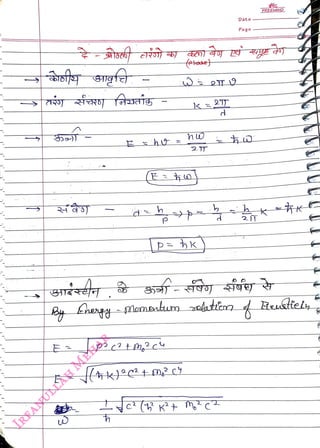 Date
Page
दे-ब्रोगली तरंगो का कला वेग एवं समूह वेग
(Phase)
→ कोणीय आवृत्ति - ω = 2πν
→ तरंग संचरण नियतांक - k = 2π/λ
→ ऊर्जा -
E = hν = hω/2π = ħω
E = ħω
→ संवेग - λ = h/p ⇒ p = h/λ = h/2π k = ħk
p = ħk
→ आइंस्टीन के ऊर्जा-संवेग संबंध से
By Energy-Momentum relation of
E = √p²c² + m₀²c⁴
E = √(ħk)²c² + m₀²c⁴
ω = 1/ħ √c²(ħ²k² + m₀²c²
IRFANULLAH